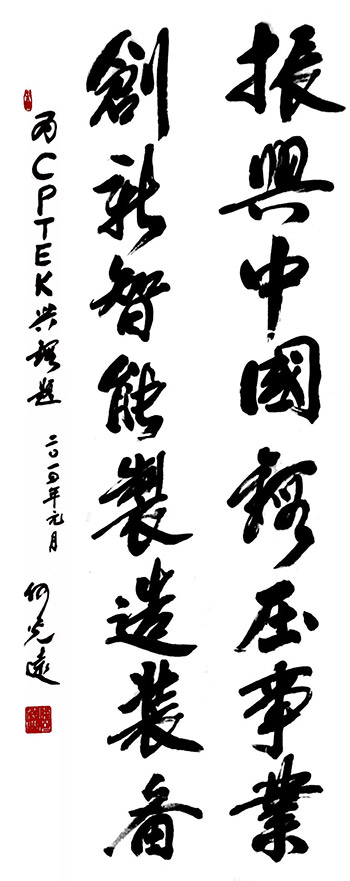 振興中國鍛压事業
創新智能製造装备
为CPTEK兴鍛题 二〇一五年元月 何光遠